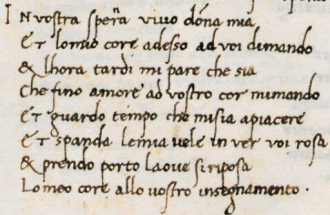 IN vostra spera vivo dona mia
Et lomio core adesso ad voi dimando
& lhora tardi mi pare che sia
Che fino amore ad vostro cor mimando
Et guardo tempo che misia apiacere
Et spanda lemia vele in ver voi rosa
& prendo porto laove siriposa
Lomeo core allo vostro insegnamento .